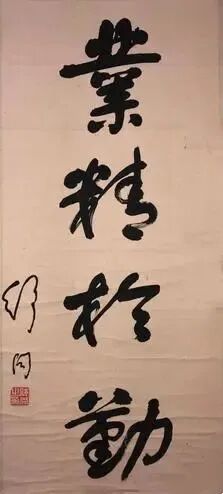 業精於勤
舒同